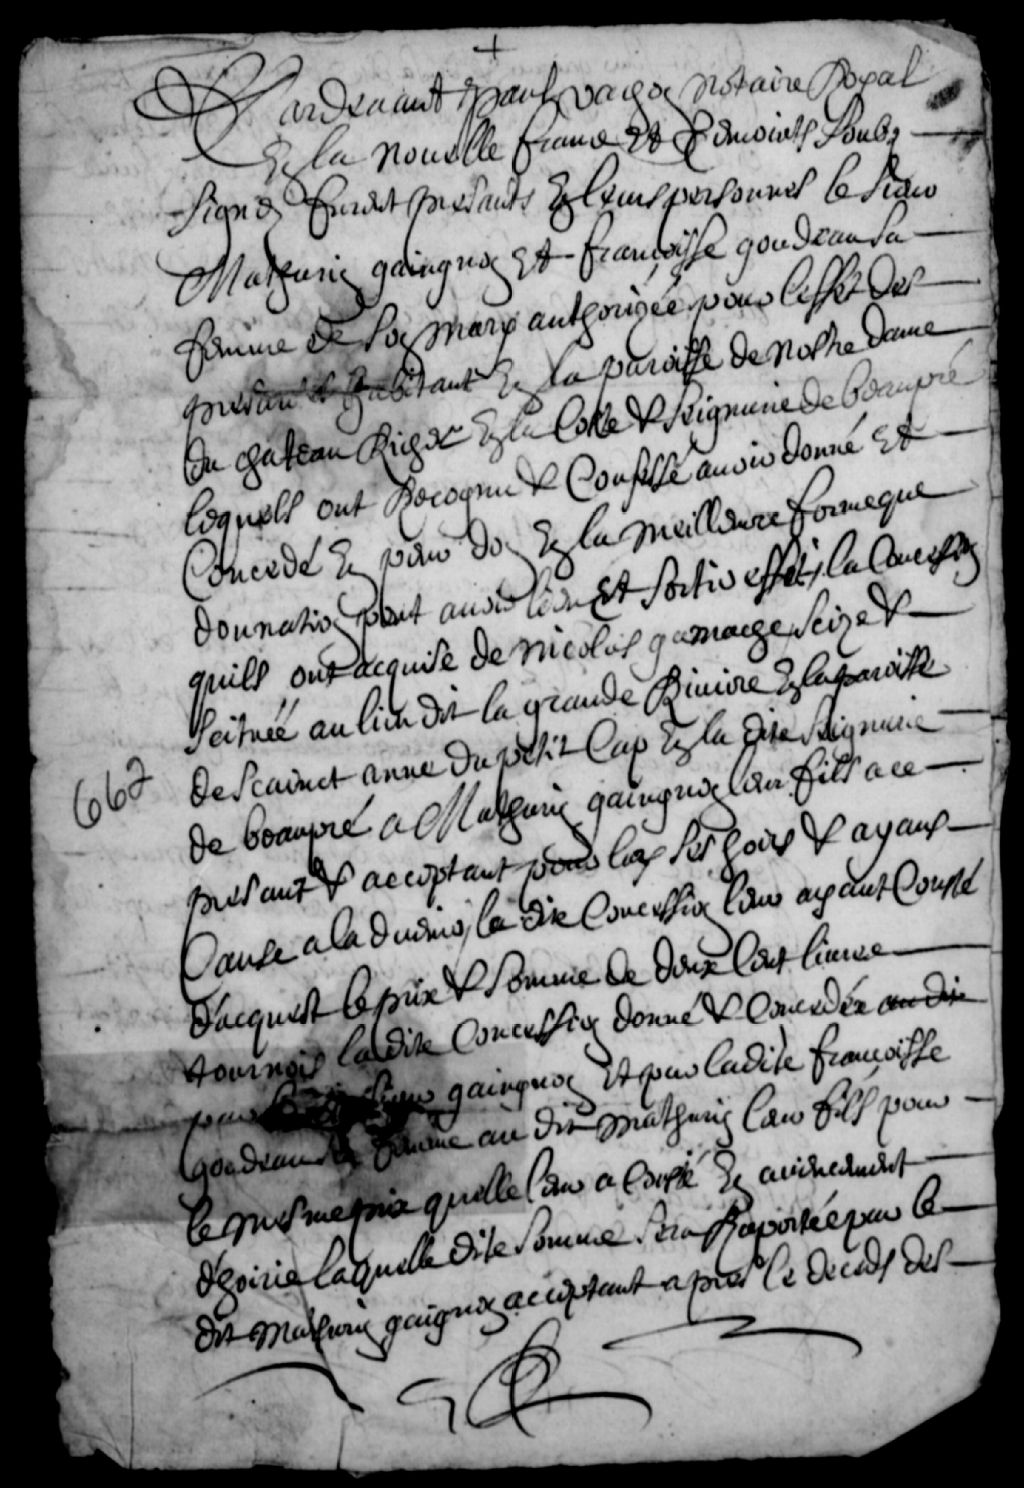 +
Pardevant paul vachon notaire Royal
En la nouvelle france Et temoints soubz
signez furent presants En leurs personnes le sieur
Mathurin gaingnon Et francoisse goudeau sa
femme de son mary authorizée pour leffet des
presantes habitant En la paroisse de nostre dame
du chateau Richer En la Coste & seigneurie de beaupré
lequels ont Recognu & Confessé avoir donné Et
Concedé En pur don En la meilleure forme que
donnation peut avoir lieu Et sortir effet, la Concession
quils ont acquise de nicolas gamache, seize &
scituée au lieu dit la grande Riviere En la paroisse
de scainct anne du petit Cap En la dite seigneurie
de beaupré a Mathurin gaingnon leur fils a ce
presant & acceptant pour luy ses hoirs & ayans
Cause a ladvenir, la dite Concession leur ayant Cousté
dacquest le prix & somme de deux Cent livre
tournois la dite Concession donné & Concedée au dit
par sieur gaingnon Et par ladite francoisse
goudeau sa femme au dit mathurin leur fils pour
le mesme prix quelle leur a Cousté En avencement
dhoirie laquelle dite somme sera Raportée par le
dit Mathurin gaignon acceptant apres le deceds des
667